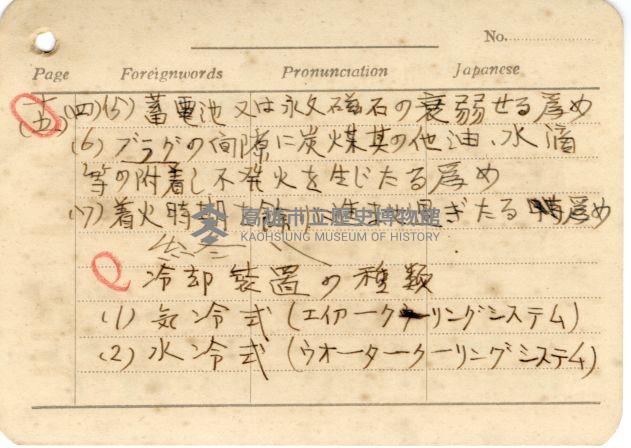 No.
Page Foreignwords Pronunciation Japanese
十五 (四)(5) 蓄電池又は永久磁石の衰弱せる為め
(6) プラグの間隙に炭煤其の他油、水滴
等の附着し不発火を生じたる為め
(7) 着火時期 過ぎたる 為め
高雄市立歷史博物館
KAOHSIUNG MUSEUM OF HISTORY
冷却装置の種類
(1) 気冷式 (エイヤークーリングシステム)
(2) 水冷式 (ウオータークーリングシステム)